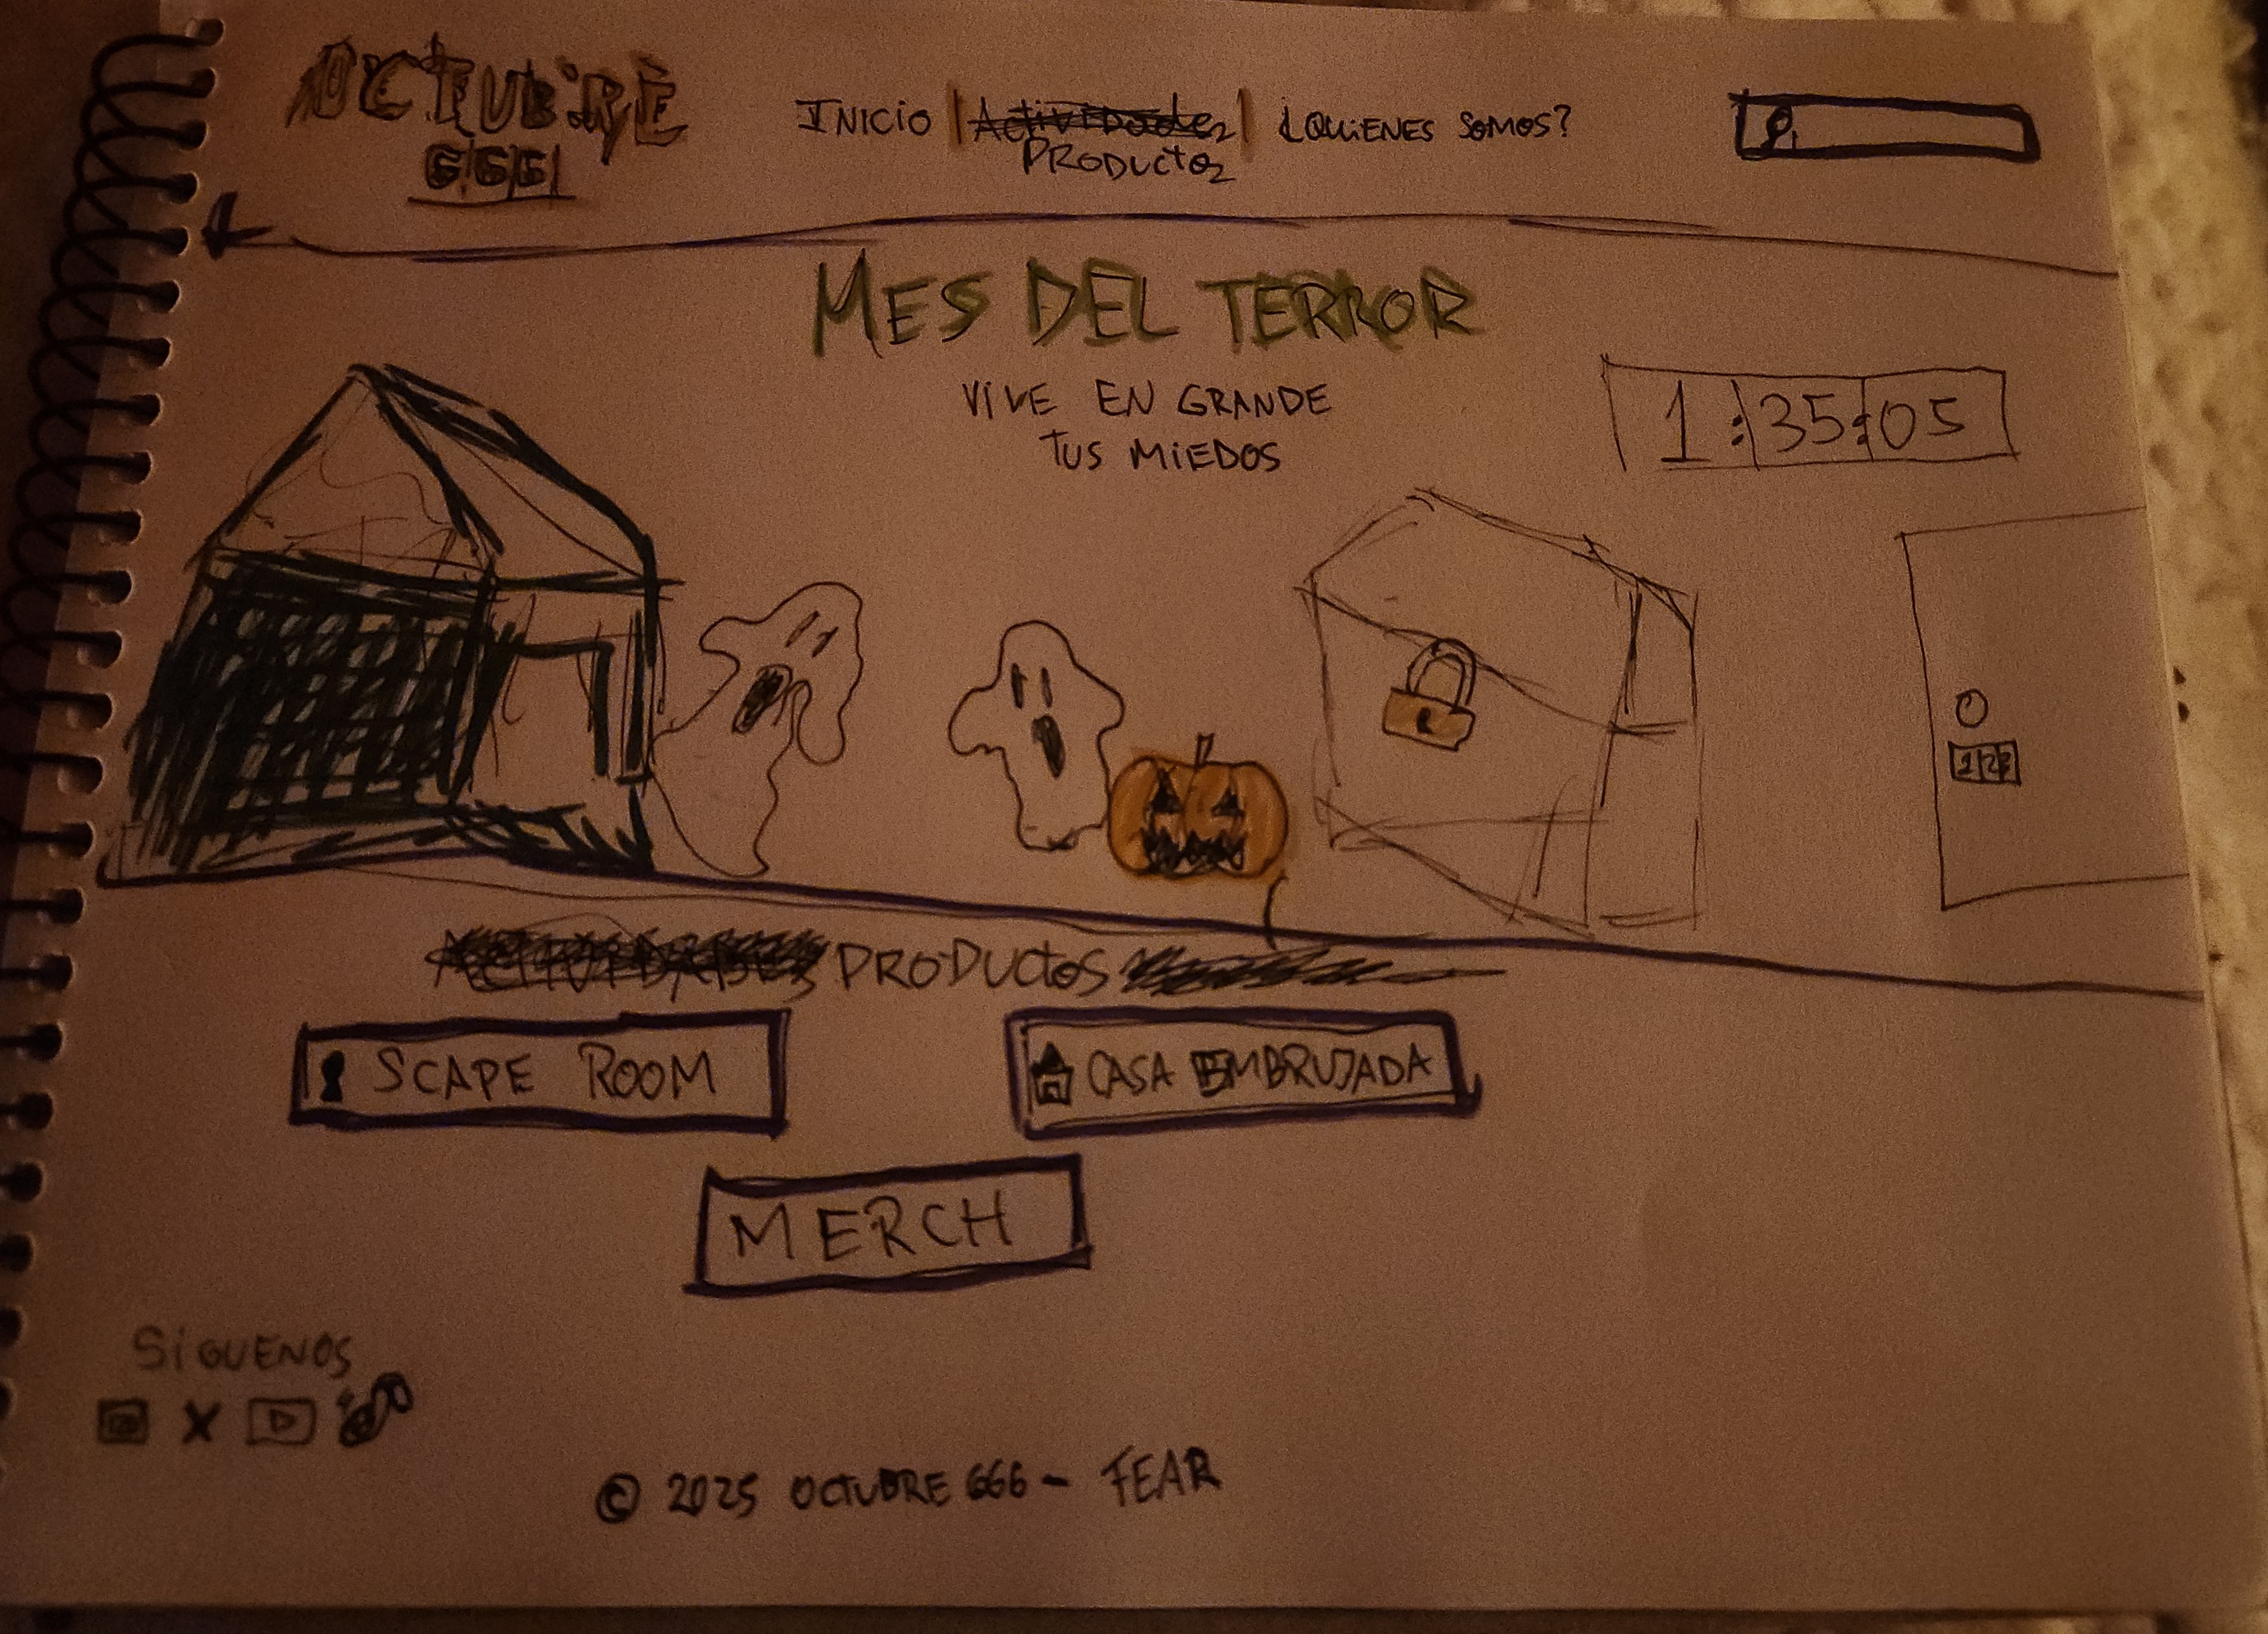 OCTUBRE
666
INICIO | Actividades | ¿QUIENES SOMOS?
PRODUCTOS
MES DEL TERROR
VIVE EN GRANDE
TUS MIEDOS
1:35:05
123
ACTIVIDADES PRODUCTOS
SCAPE ROOM
CASA EMBRUJADA
MERCH
SIGUENOS
X
© 2025 OCTUBRE 666 - FEAR